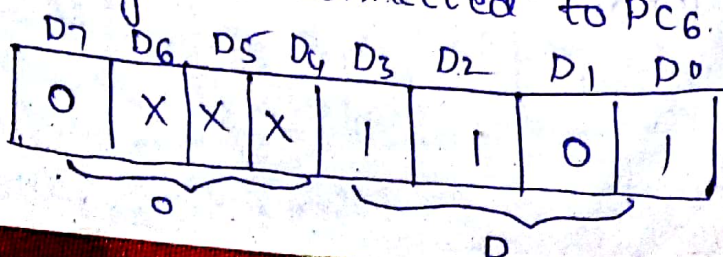 to PC6.
D7 D6 D5 D4 D3 D2 D1 D0
0 X X X 1 1 0 1
0 D